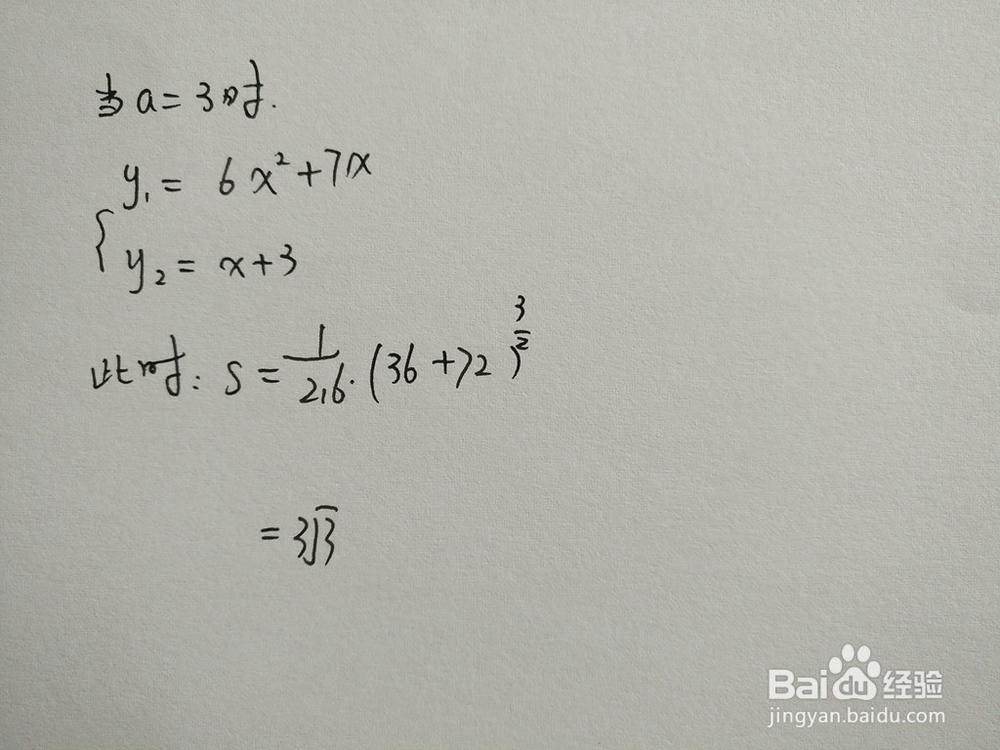 当a=3时.
y₁= 6x²+7x
y₂= x+3
此时: S = 1/216·(36+72)^(3/2)
=3√3
Baidu经验
jingyan.baidu.com